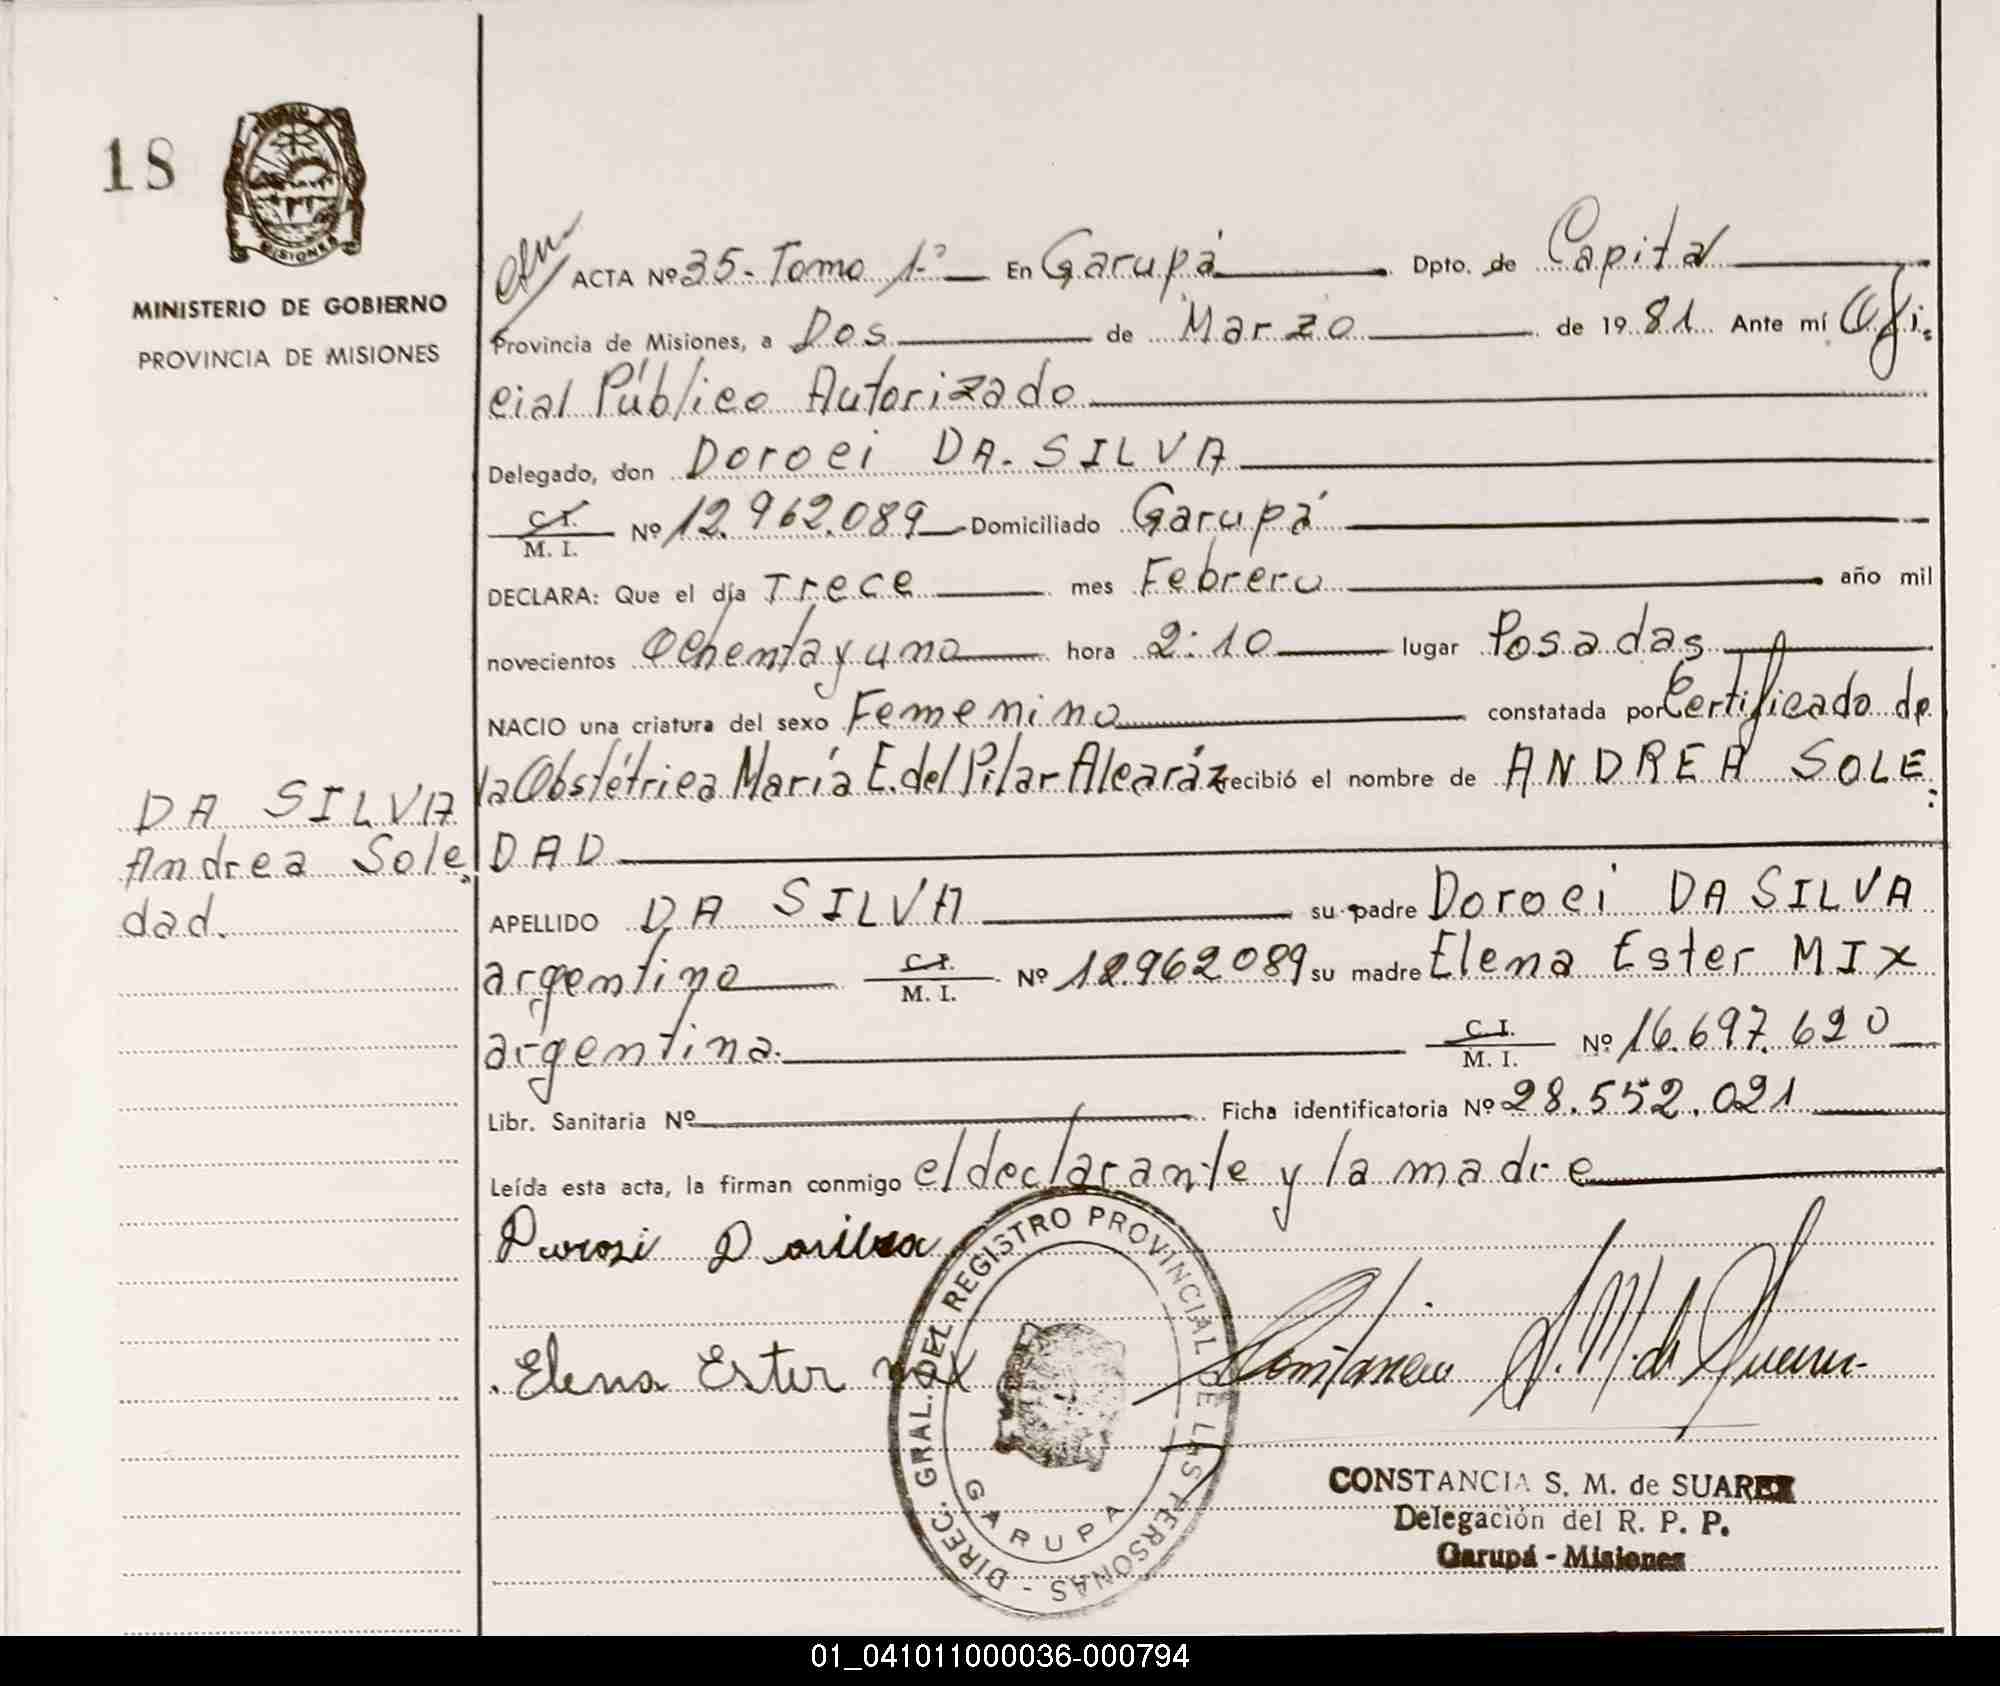 18
MISIONES
MINISTERIO DE GOBIERNO
PROVINCIA DE MISIONES
ACTA Nº 35.- Tomo 1.º En Garupá Dpto. de Capital
Provincia de Misiones, a Dos de Marzo de 1981 Ante mí Ofi-
cial Público Autorizado
Delegado, don Doroci DA SILVA
C. I.
M. I. Nº 12.962.089 Domiciliado Garupá
DECLARA: Que el día Trece mes Febrero año mil
novecientos Ochenta y uno hora 2:10 lugar Posadas
NACIO una criatura del sexo Femenino constatada por Certificado de
la Obstétrica María E. del Pilar Alcaráz recibió el nombre de ANDREA SOLE-
DAD
DA SILVA
Andrea Sole-
dad.
APELLIDO DA SILVA su padre Doroci DA SILVA
argentino C. I. M. I. Nº 12.962089 su madre Elena Ester MIX
argentina. C. I. M. I. Nº 16.697.620
Libr. Sanitaria Nº Ficha identificatoria Nº 28.552.021
Leída esta acta, la firman conmigo el declarante y la madre
Elena Ester mix
DIREC. GRAL. DEL REGISTRO PROVINCIAL DE LAS PERSONAS -
GARUPA
CONSTANCIA S. M. de SUAREZ
Delegación del R. P. P.
Garupá - Misiones
01_041011000036-000794